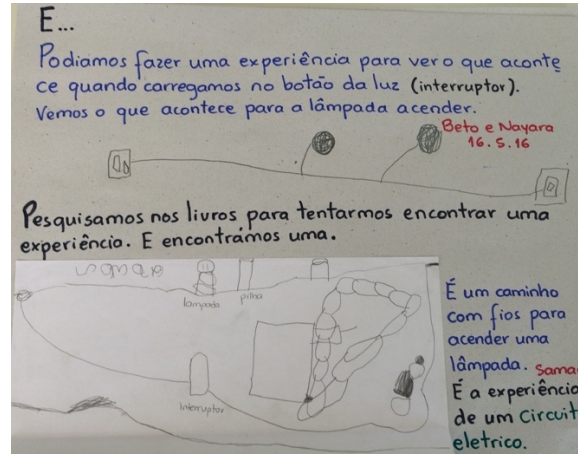 E...
Podiamos fazer uma experiência para ver o que aconte
ce quando carregamos no botão da luz (interruptor).
Vemos o que acontece para a lâmpada acender.
Beto e Nayara
16.5.16
Pesquisamos nos livros para tentarmos encontrar uma
experiência. E encontrámos uma.
lâmpada
pilha
Interruptor
É um caminho
com fios para
acender uma
lâmpada. Sama
É a experiência
de um Circuit
eletrico.